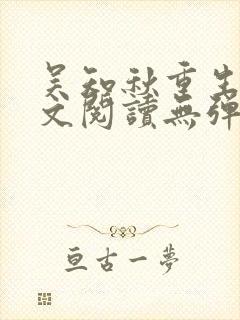 吴知秋重生
文閱讀無彈
亘古一夢